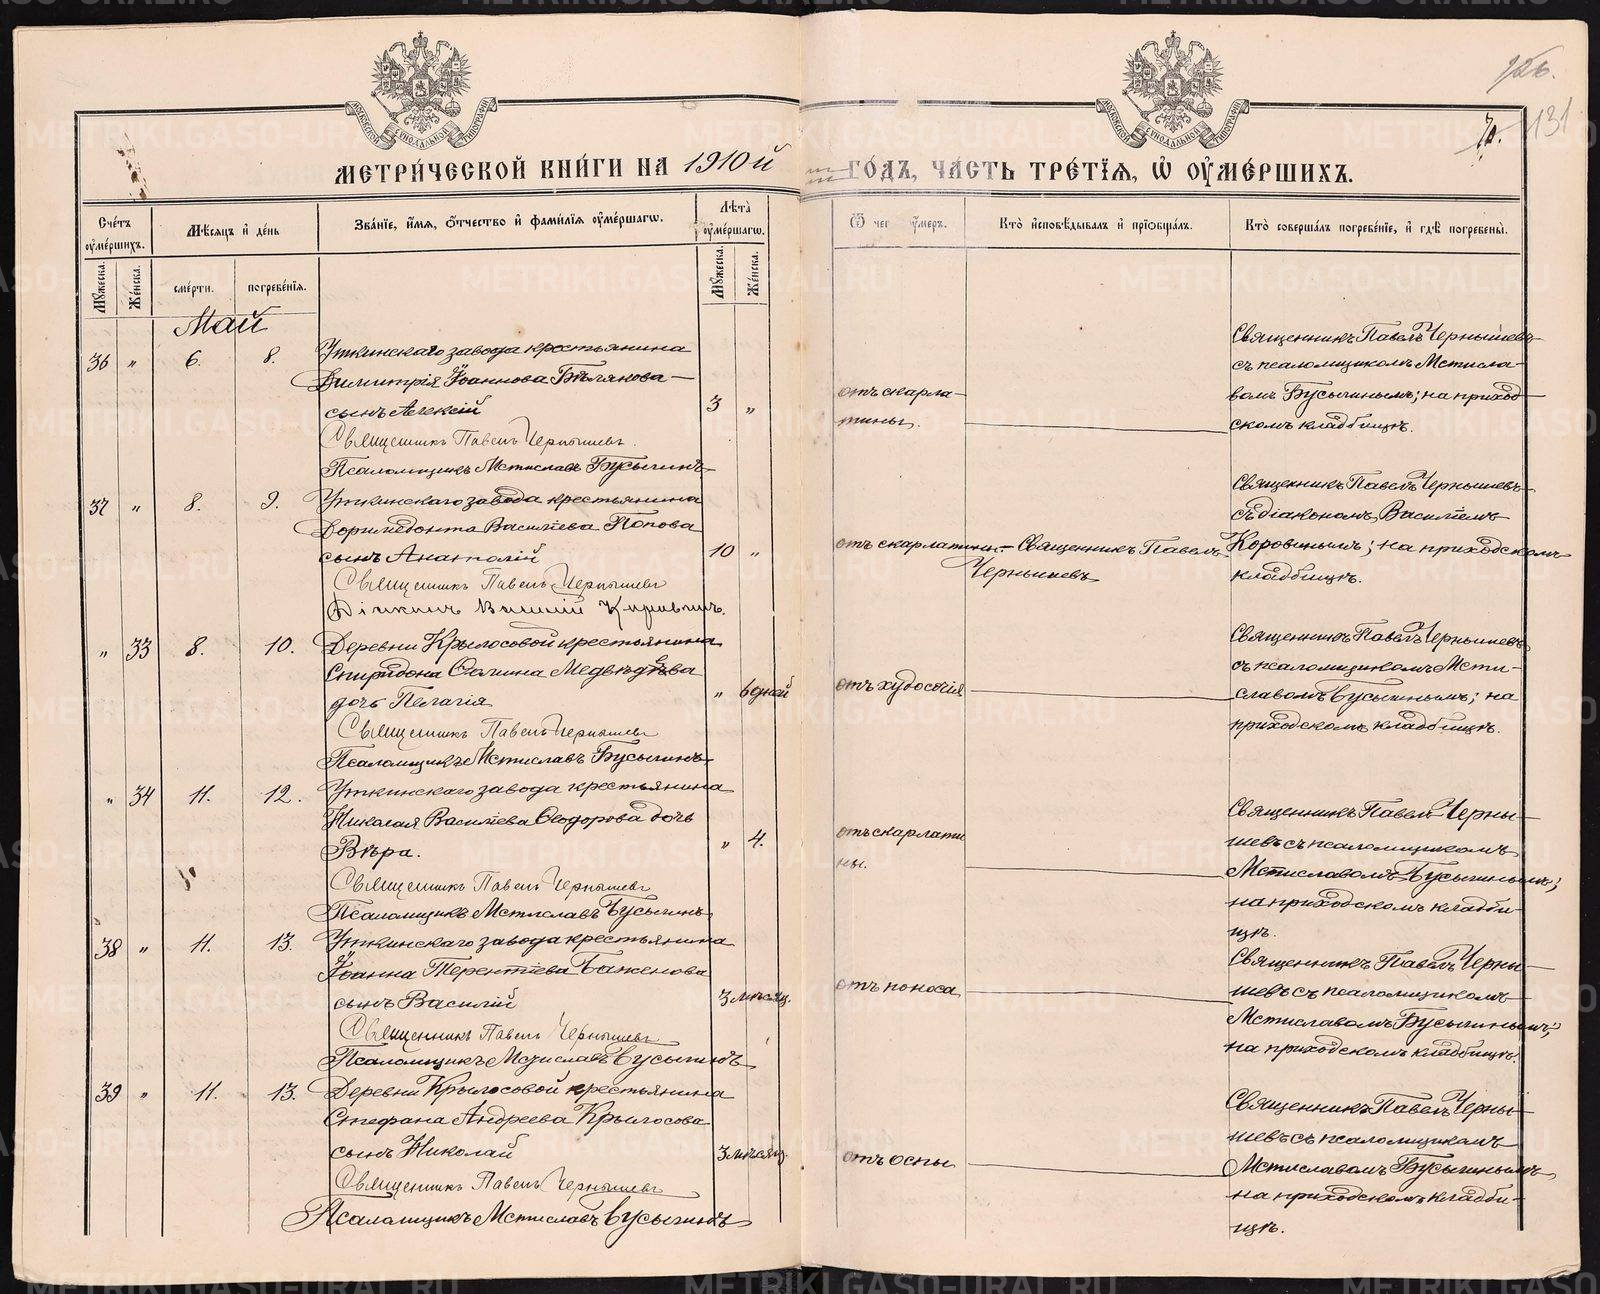 126.
70. 131
МЕТРИ́ЧЕСКОЙ КНИ́ГИ НА 1910й ГО́ДЪ, ЧА́СТЬ ТРЕ́ТЇѦ, Ѡ҆ ОУ҆МЕ́РШИХЪ.
Сче́тъ оу҆ме́ршихъ.
Мѣ́сѧцъ и҆ де́нь
Зва́нїе, и҆́мѧ, ѻ҆́тчество и҆ фами́лїѧ оу҆ме́ршагѡ.
Лѣ́та оу҆ме́ршагѡ.
Ѿ чегѡ̀ оу҆́меръ.
Кто̀ и҆сповѣ́дывалъ и҆ прїѡбща́лъ.
Кто̀ соверша́лъ погребе́нїе, и҆ гдѣ̀ погребены̀.
Мꙋ́жеска.
Же́нска.
сме́рти.
погребе́нїѧ.
Мꙋ́жеска.
Же́нска.
Май
36 " 6. 8. Уткинскаго завода крестьянина
Димитрія Іоаннова Бѣлякова
сынъ Алексій 3 "
Священникъ Павелъ Чернышевъ.
Псаломщикъ Мстиславъ Бусыгинъ
отъ скарла-
тины.
Священникъ Павелъ Чернышевъ
съ псаломщикомъ Мстисла-
вомъ Бусыгинымъ; на приход-
скомъ кладбищѣ.
37 " 8. 9. Уткинскаго завода крестьянина
Доримедонта Васильева Попова
сынъ Анатолій 10 "
Священникъ Павелъ Чернышевъ
Діаконъ Василій Коровинъ.
отъ скарлатины. Священникъ Павелъ
Чернышевъ
Священникъ Павелъ Чернышевъ
съ діакономъ Василіемъ
Коровинымъ; на приходскомъ
кладбищѣ.
" 33 8. 10. Деревни Крылосовой крестьянина
Спиридона Фомина Медвѣдева
дочь Пелагія " 6 дней
Священникъ Павелъ Чернышевъ
Псаломщикъ Мстиславъ Бусыгинъ
отъ худосочія
Священникъ Павелъ Чернышевъ
съ псаломщикомъ Мсти-
славомъ Бусыгинымъ; на
приходскомъ кладбищѣ.
" 34 11. 12. Уткинскаго завода крестьянина
Николая Васильева Ѳеодорова дочь
Вѣра. " 4.
Священникъ Павелъ Чернышевъ
Псаломщикъ Мстиславъ Бусыгинъ
отъ скарлати
ны.
Священникъ Павелъ Черны-
шевъ съ псаломщикомъ
Мстиславомъ Бусыгинымъ;
на приходскомъ кладби-
щѣ.
38 " 11. 13. Уткинскаго завода крестьянина
Іоанна Терентіева Баженова
сынъ Василій 3 мѣсяц.
Священникъ Павелъ Чернышевъ
Псаломщикъ Мстиславъ Бусыгинъ
отъ поноса
Священникъ Павелъ Черны-
шевъ съ псаломщикомъ
Мстиславомъ Бусыгинымъ;
на приходскомъ кладбищѣ.
39 " 11. 13. Деревни Крылосовой крестьянина
Стефана Андреева Крылосова
сынъ Николай 3 мѣсяц.
Священникъ Павелъ Чернышевъ
Псаломщикъ Мстиславъ Бусыгинъ
отъ оспы
Священникъ Павелъ Черны-
шевъ съ псаломщикомъ
Мстиславомъ Бусыгинымъ
на приходскомъ кладби-
щѣ.
METRIKI.GASO-URAL.RU